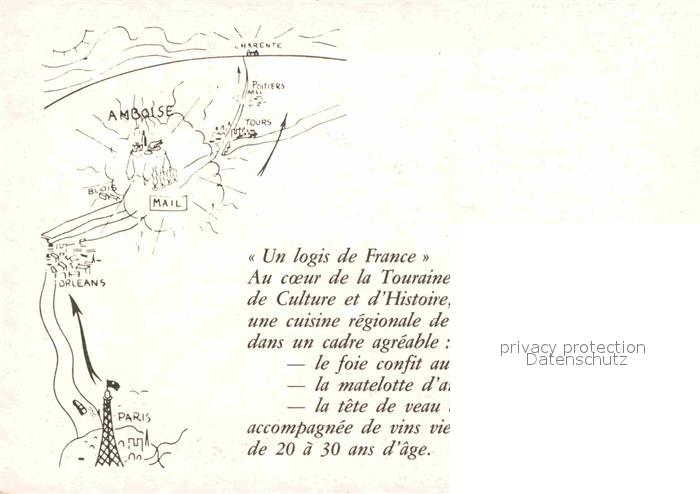 CHARENTE
POITIERS
AMBOISE
TOURS
BLOIS
MAIL
ORLEANS
PARIS
« Un logis de France »
Au cœur de la Touraine
de Culture et d'Histoire,
une cuisine régionale de
dans un cadre agréable :
— le foie confit au
— la matelotte d'a
— la tête de veau
accompagnée de vins vie
de 20 à 30 ans d'âge.
privacy protection
Datenschutz